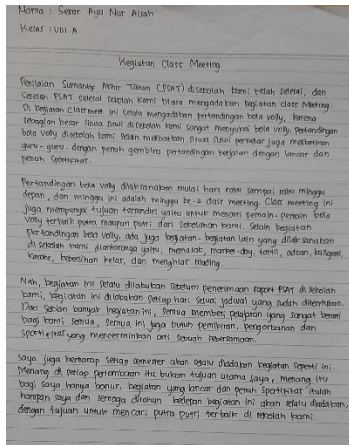 Nama : Sekar Ayu Nur Aisah
Kelas : VIII A
Kegiatan Class Meeting
Penilaian Sumatif Akhir Tahun (PSAT) disekolah kami telah selesai, dan
setelah PSAT selesai sekolah kami biasa mengadakan kegiatan class Meeting.
Di kegiatan Classmeet ini selalu mengadakan pertandingan bola volly, karena
sebagian besar siswa siswi di sekolah kami sangat menyukai bola volly. pertandingan
bola volly disekolah kami selain melibatkan siswa siswi pertandingan juga melibatkan
guru-guru. dengan penuh gembira pertandingan berjalan dengan lancar dan
penuh sportifitas.
Pertandingan bola volly dilaksanakan mulai hari rabu sampai rabu minggu
depan, dan minggu ini adalah minggu ke-2 class meeting. Class meeting ini
juga mempunyai tujuan tersendiri yaitu untuk mencari pemain-pemain bola
volly terbaik putra maupun putri dari sekolahan kami. Selain kegiatan
pertandingan bola volly, ada juga kegiatan-kegiatan lain yang dilaksanakan
di sekolah kami, diantaranya yaitu, memasak, market-day, tartil, adzan, kaligrafi,
karaoke, kebersihan kelas, dan menghias mading.
Nah, kegiatan ini selalu dilakukan sebelum penerimaan raport PSAT di sekolah
kami, kegiatan ini dilakukan setiap hari sesuai jadwal yang sudah ditentukan.
Dari sekian banyak kegiatan ini, semua memberi pelajaran yang sangat berarti
bagi kami semua, semua ini juga butuh pemikiran, pengorbanan dan
sportifitas yang mencerminkan arti sebuah kebersamaan.
Saya juga berharap setiap semester akan selalu diadakan kegiatan seperti ini.
Menang di setiap perlombaan itu bukan tujuan utama saya, menang itu
bagi saya hanya bonus, kegiatan yang lancar dan penuh sportifitas itulah
harapan saya dan semoga ditahun kedepan kegiatan ini akan selalu diadakan,
dengan tujuan untuk mencari putra putri terbaik di sekolah kami.